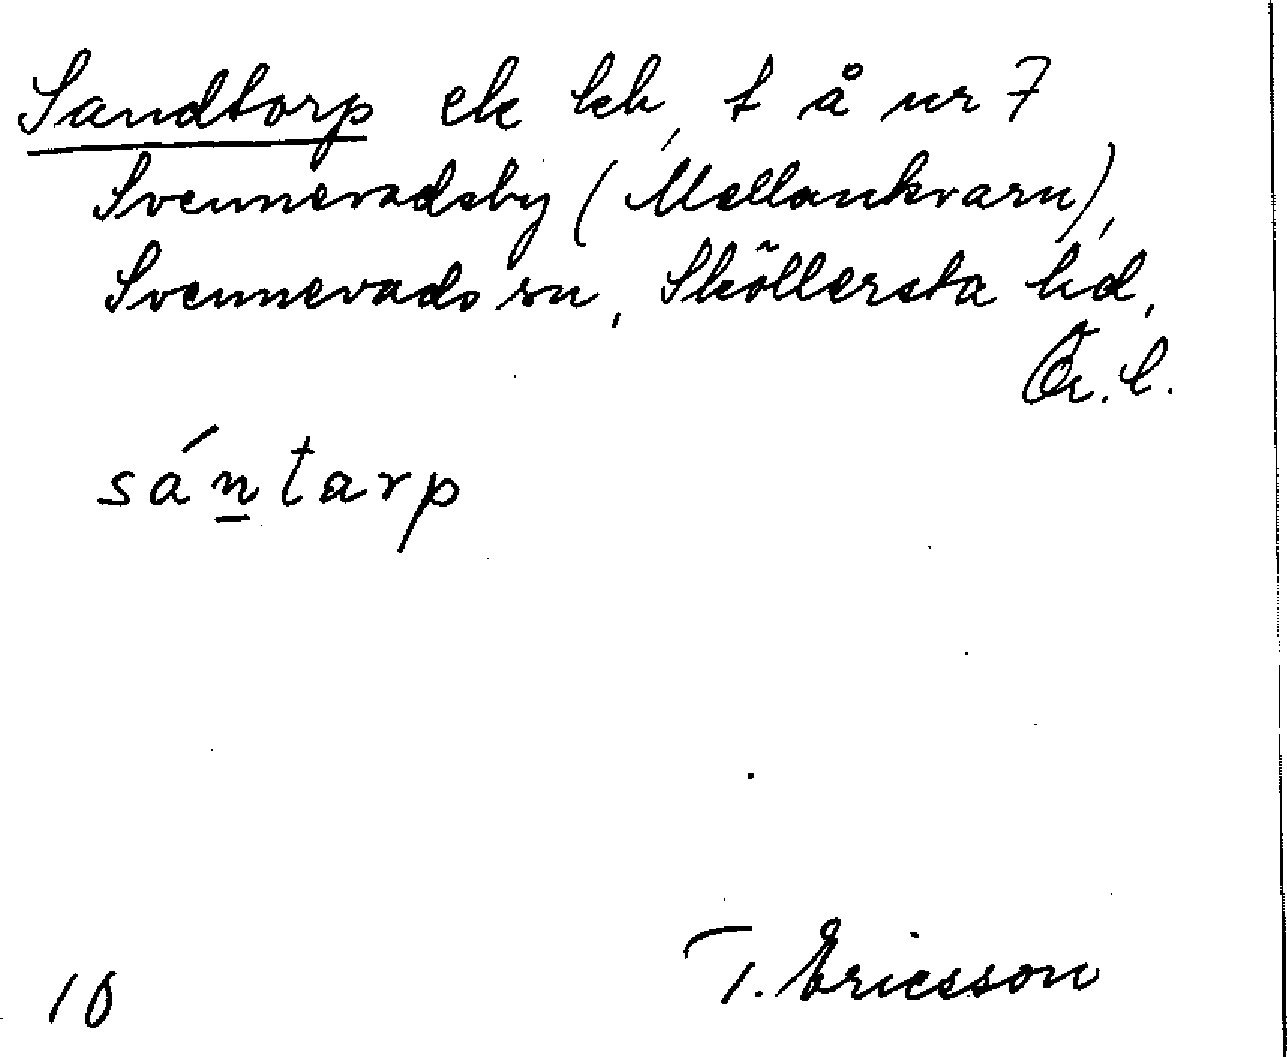 Sandtorp ek lkh, t å nr 7
Svennevadsby (Mellankvarn),
Svennevads sn, Sköllersta hd,
Ör. l.
sántarp
T. Ericsson
10